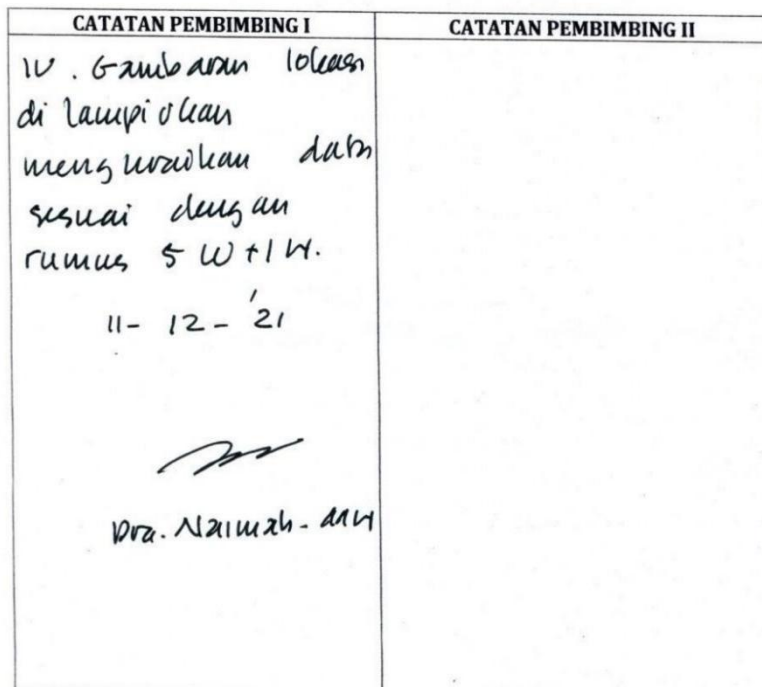 CATATAN PEMBIMBING I
CATATAN PEMBIMBING II
IV. Gambaran lokasi
di lampirkan
menguraikan data
sesuai dengan
rumus 5 W + 1 H.
11 - 12 - '21
Dra. Naimah